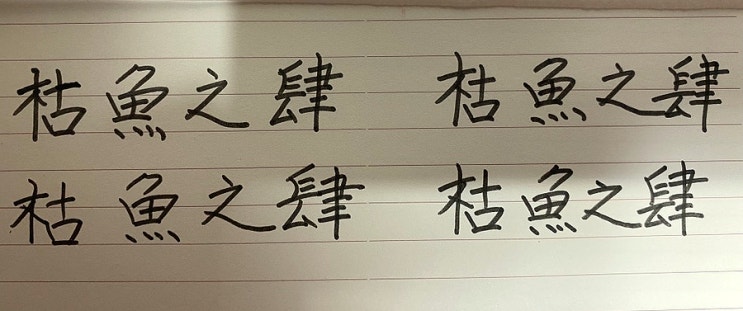 枯魚之肆 枯魚之肆
枯魚之肆 枯魚之肆